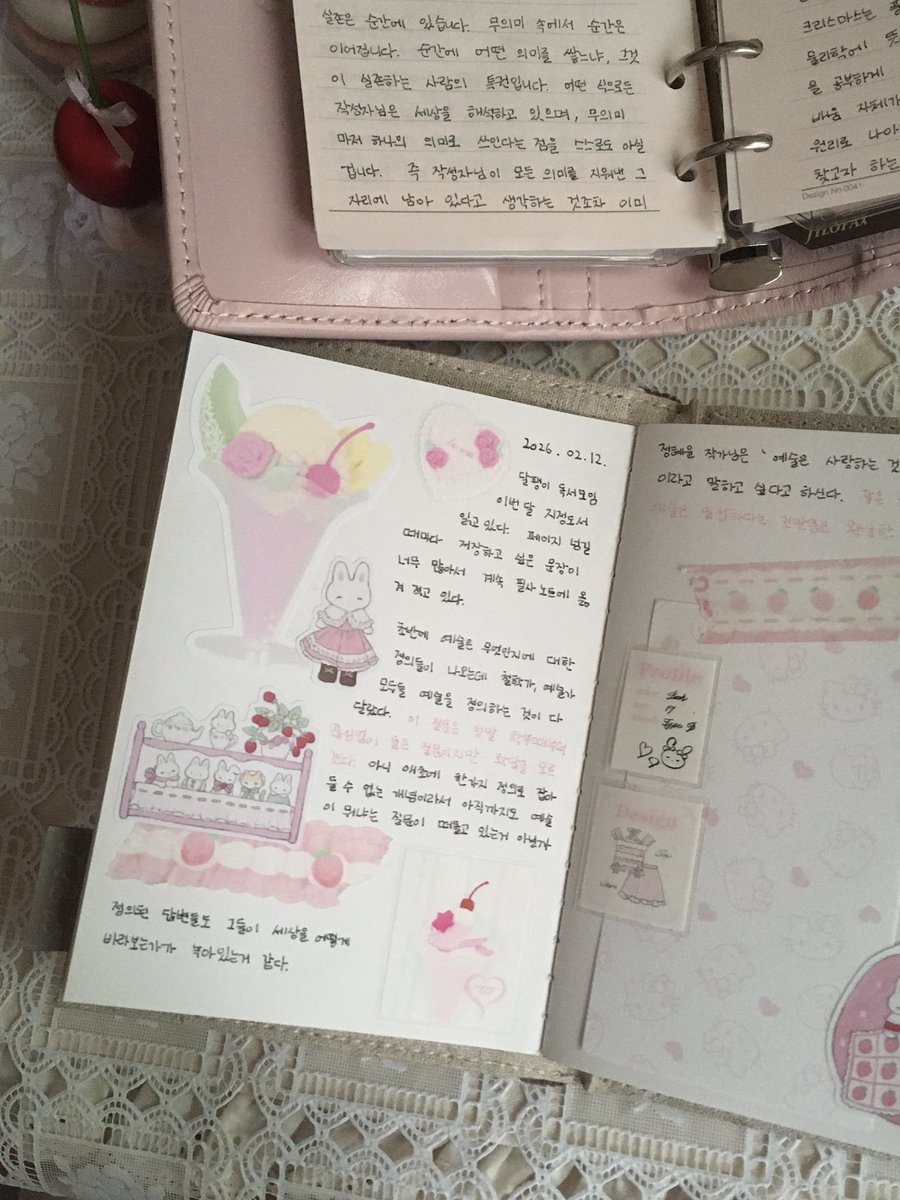 실존은 순간에 있습니다. 무의미 속에서 순간은
이어집니다. 순간에 어떤 의미를 쌓느냐, 그것
이 실존하는 사람의 특권입니다. 어떤 식으로든
작성자님은 세상을 해석하고 있으며, 무의미
마저 하나의 의미로 쓰인다는 점을 스스로도 아실
겁니다. 즉 작성자님이 모든 의미를 지워낸 그
자리에 남아 있다고 생각하는 것조차 이미
크리스마스는
물리학에
을 공부하게
배움 자체가
원리로 나아
찾고자 하는
Design No.0041-
FILOFAX
2026.02.12.
달팽이 독서모임
이번달 지정도서
읽고 있다. 페이지 넘길
때마다 저장하고 싶은 문장이
너무 많아서 계속 필사 노트에 옮
겨 적고 있다.
초반에 예술은 무엇인지에 대한
정의들이 나오는데 철학가, 예술가
모두들 예술을 정의하는 것이 다
달랐다. 이 질문은 정말 학부때부터
끊임없이 들은 질문이지만 해답을 모르
겠다. 아니 애초에 한가지 정의로 잡아
둘 수 없는 개념이라서 아직까지도 예술
이 뭐냐는 질문이 떠돌고 있는거 아닌가
정의된 답변들도 그들이 세상을 어떻게
바라보는가가 녹아있는거 같다.
정혜윤 작가님은 '예술은 사랑하는 것
이라고 말하고 싶다고 하신다.
Profile
17
Design